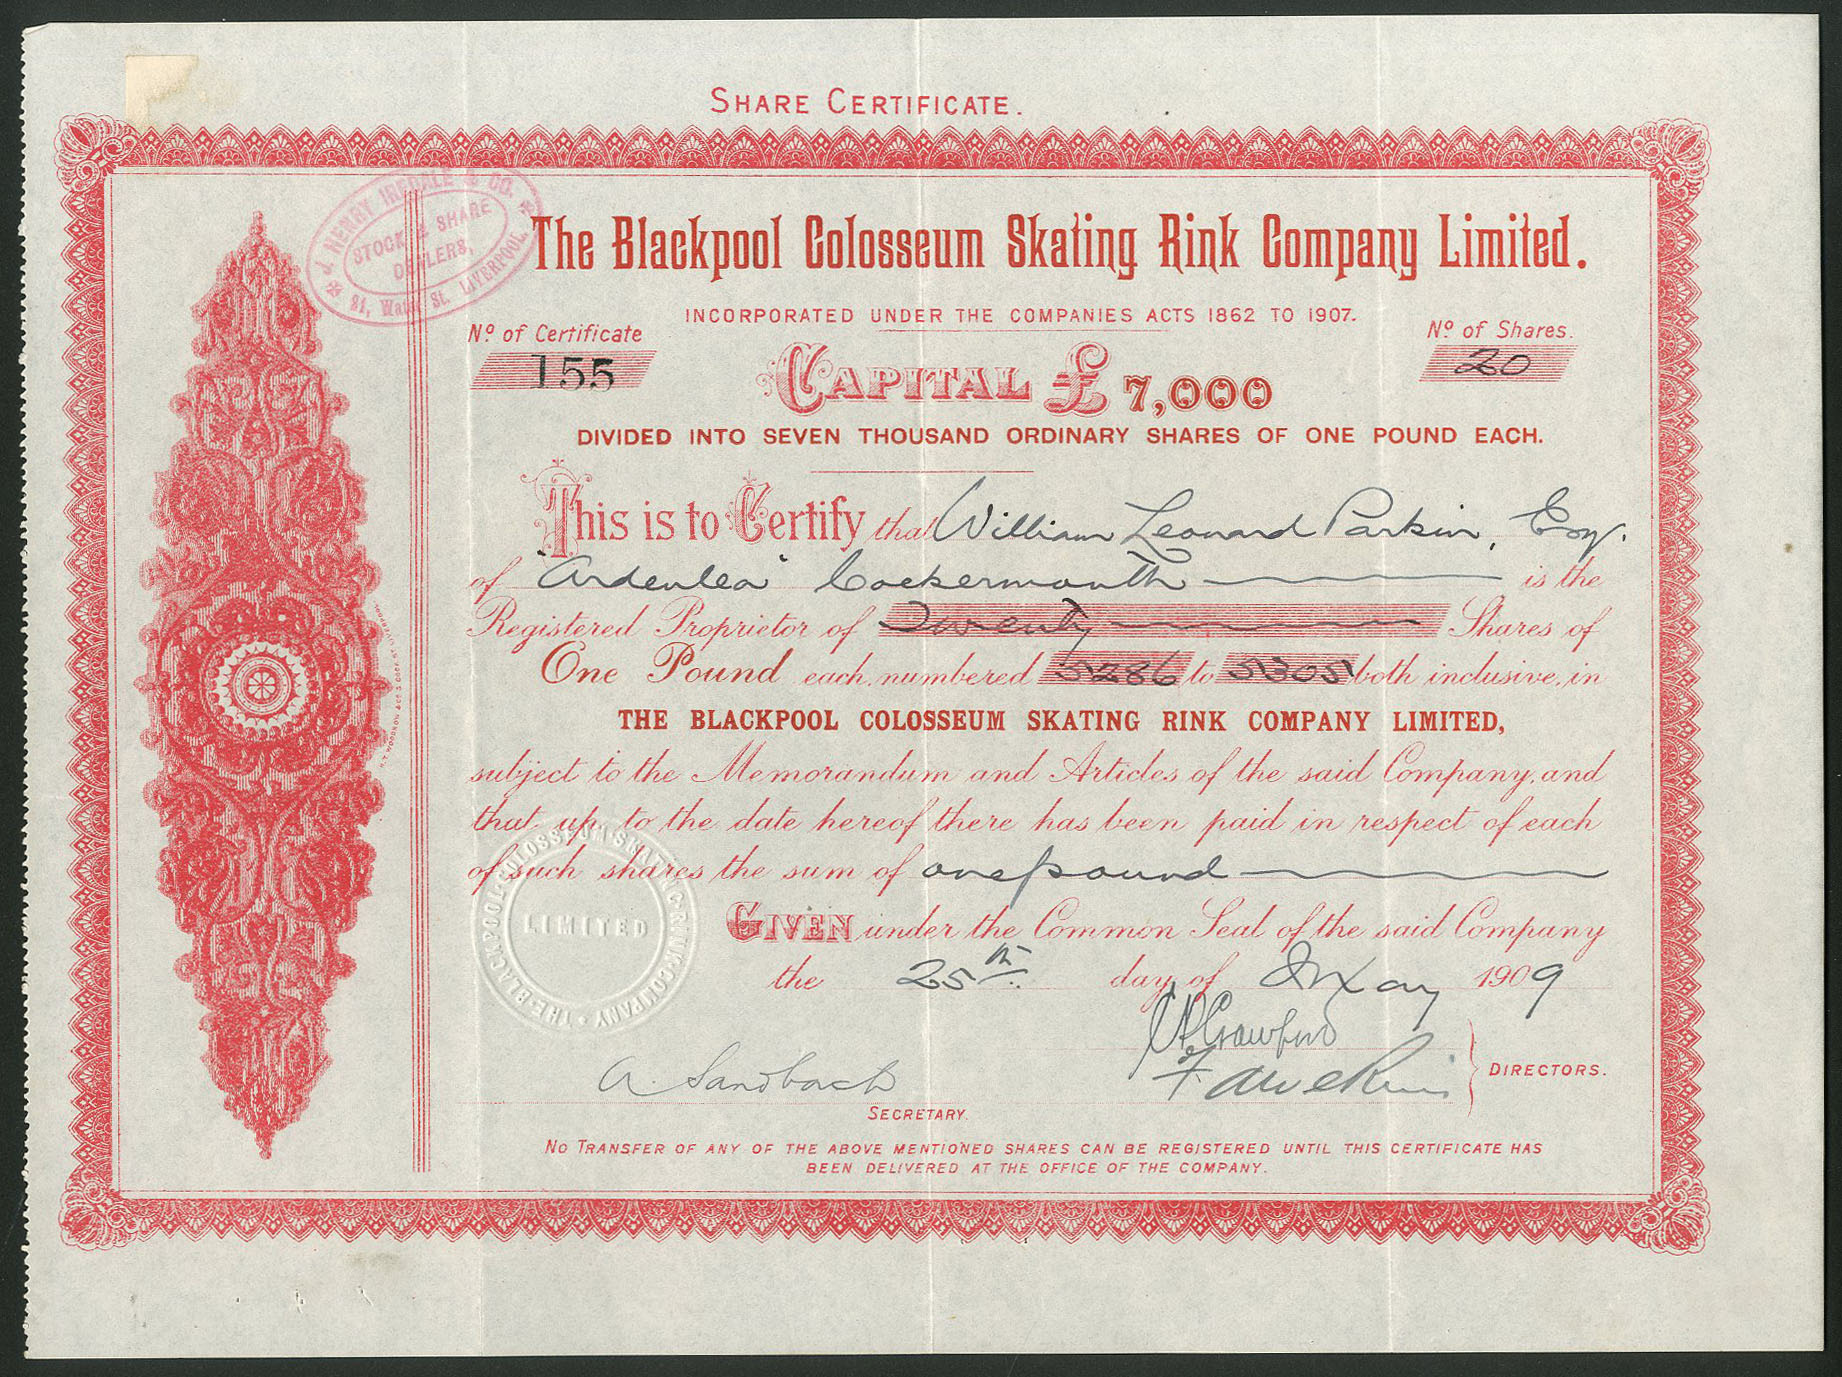 SHARE CERTIFICATE.
J. HENRY IREDALE & CO.
STOCK & SHARE
DEALERS,
21, Water St. LIVERPOOL.
The Blackpool Colosseum Skating Rink Company Limited.
INCORPORATED UNDER THE COMPANIES ACTS 1862 TO 1907.
No of Certificate
155
No of Shares.
20
CAPITAL £7,000
DIVIDED INTO SEVEN THOUSAND ORDINARY SHARES OF ONE POUND EACH.
This is to Certify that William Leonard Parkin, Esq.
of "Ardenlea" Cockermouth is the
Registered Proprietor of Twenty Shares of
One Pound each, numbered 5286 to 5305 both inclusive, in
THE BLACKPOOL COLOSSEUM SKATING RINK COMPANY LIMITED,
subject to the Memorandum and Articles of the said Company, and
that up to the date hereof there has been paid in respect of each
of such shares the sum of one pound
GIVEN under the Common Seal of the said Company
the 25th. day of May 1909
THE·BLACKPOOL·COLOSSEUM·SKATING·RINK·COMPANY·
LIMITED
Crawford
A. Sandbach
DIRECTORS.
SECRETARY.
NO TRANSFER OF ANY OF THE ABOVE MENTIONED SHARES CAN BE REGISTERED UNTIL THIS CERTIFICATE HAS
BEEN DELIVERED AT THE OFFICE OF THE COMPANY.